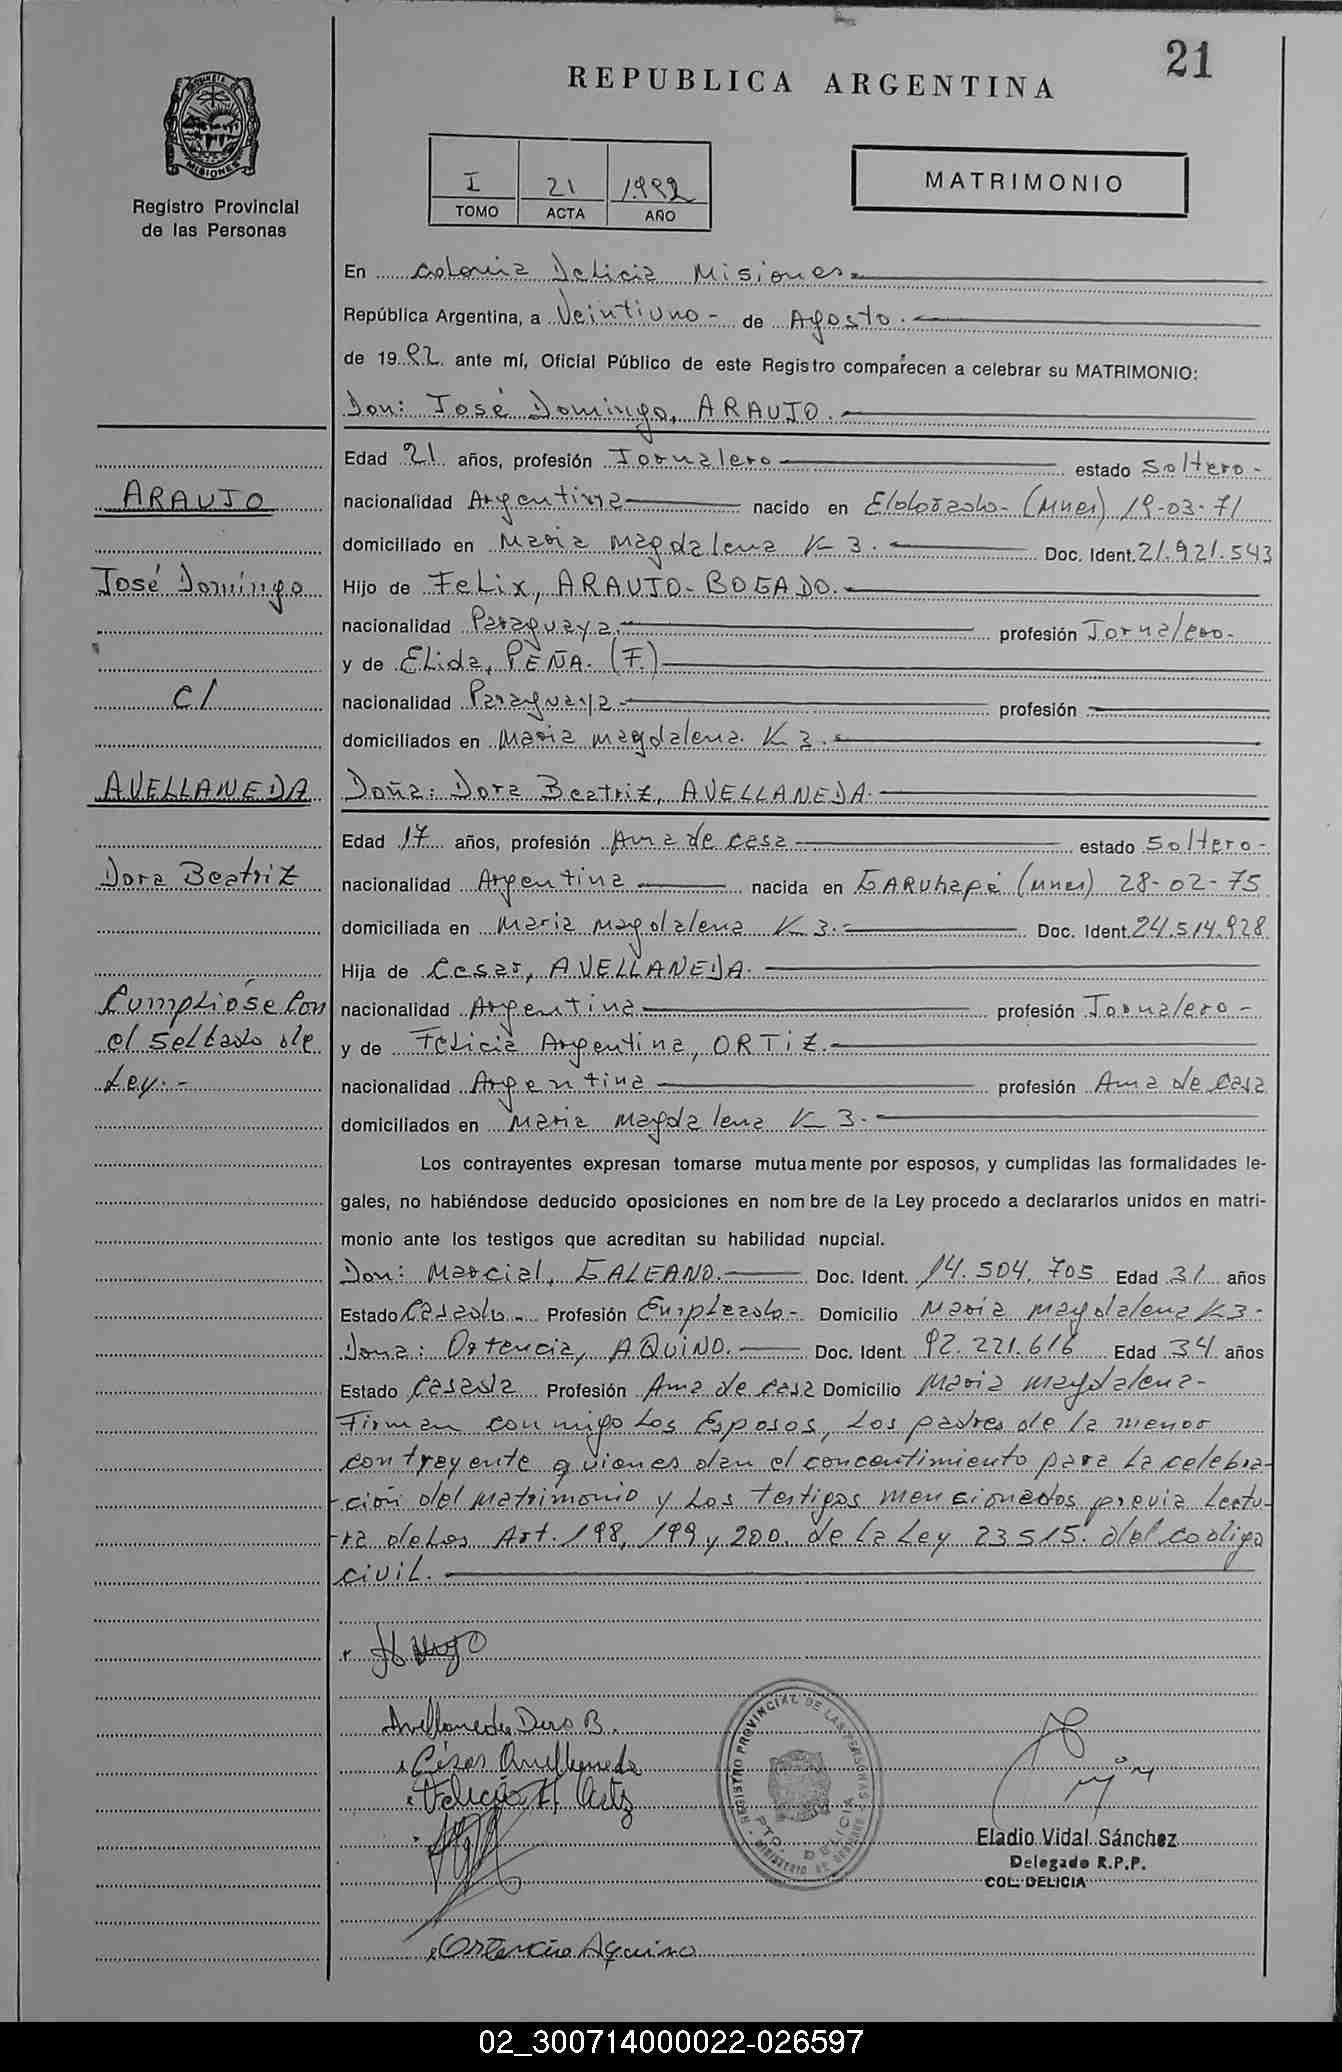 21
REPUBLICA ARGENTINA
MISIONES
Registro Provincial
de las Personas
I 21 1992
TOMO ACTA AÑO
MATRIMONIO
En Colonia Delicia Misiones.
República Argentina, a Veintiuno - de Agosto.
de 1992 ante mí, Oficial Público de este Registro comparecen a celebrar su MATRIMONIO:
Don: José Domingo, ARAUJO.
Edad 21 años, profesión Jornalero estado Soltero -
ARAUJO
nacionalidad Argentina nacido en Eldorado - (Mnes) 19-03-71
domiciliado en Maria Magdalena K 3. Doc. Ident. 21.921.543
José Domingo
Hijo de Felix, ARAUJO - BOGADO.
nacionalidad Paraguaya. profesión Jornalero -
y de Elida, PEÑA. (F.)
c/
nacionalidad Paraguaya - profesión
domiciliados en Maria Magdalena K 3.
AVELLANEDA
Doña: Dora Beatriz, AVELLANEDA.
Edad 17 años, profesión Ama de casa estado Soltero -
Dora Beatriz
nacionalidad Argentina nacida en GARUhapé (Mnes) 28-02-75
domiciliada en Maria Magdalena K 3. Doc. Ident. 24.514.928
Hija de Cesar, AVELLANEDA.
Cumplióse Con
el Sellado de
Ley. -
nacionalidad Argentina profesión Jornalero -
y de Felicia Argentina, ORTIZ.
nacionalidad Argentina profesión Ama de Casa
domiciliados en Maria Magdalena K 3.
Los contrayentes expresan tomarse mutuamente por esposos, y cumplidas las formalidades le-
gales, no habiéndose deducido oposiciones en nombre de la Ley procedo a declararlos unidos en matri-
monio ante los testigos que acreditan su habilidad nupcial.
Don: Marcial, GALEANO. Doc. Ident. 14.504.705 Edad 31 años
Estado Casado - Profesión Empleado - Domicilio Maria Magdalena K3 -
Dona: Ortencia, AQUINO. Doc. Ident. 92.221.616 Edad 34 años
Estado Casada Profesión Ama de casa Domicilio Maria Magdalena -
Firman conmigo Los Esposos, Los padres de la menor
contrayente quienes dan el concentimiento para La celebra-
-ción del Matrimonio y Los Testigos mencionados previa Lectu-
-ra deLos Art. 198, 199 y 200. de la Ley 23515. del codigo
civil.
Avellaneda Dora B.
César Avellaneda
Felicia A Ortiz
REGISTRO PROVINCIAL DE LAS PERSONAS
PTO. DELICIA
MINISTERIO DE GOBIERNO
Eladio Vidal Sánchez
Delegado R.P.P.
COL. DELICIA
Ortencia Aquino
02_300714000022-026597